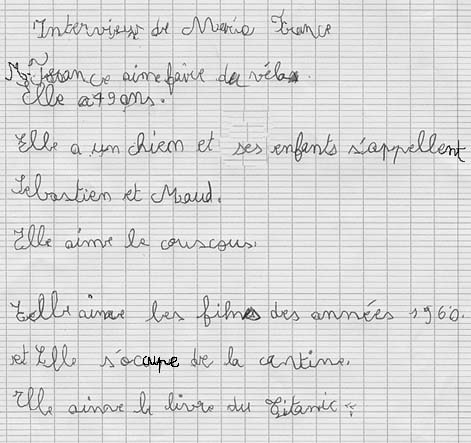 Interview de Maria France
M. France aime faire du vélo.
Elle a 49 ans.
Elle a un chien et ses enfants s'appellent
Sebastien et Maud.
Elle aime le couscous.
Elle aime les films des années 1960.
et Elle s'occupe de la cantine.
Elle aime le livre du Titanic.